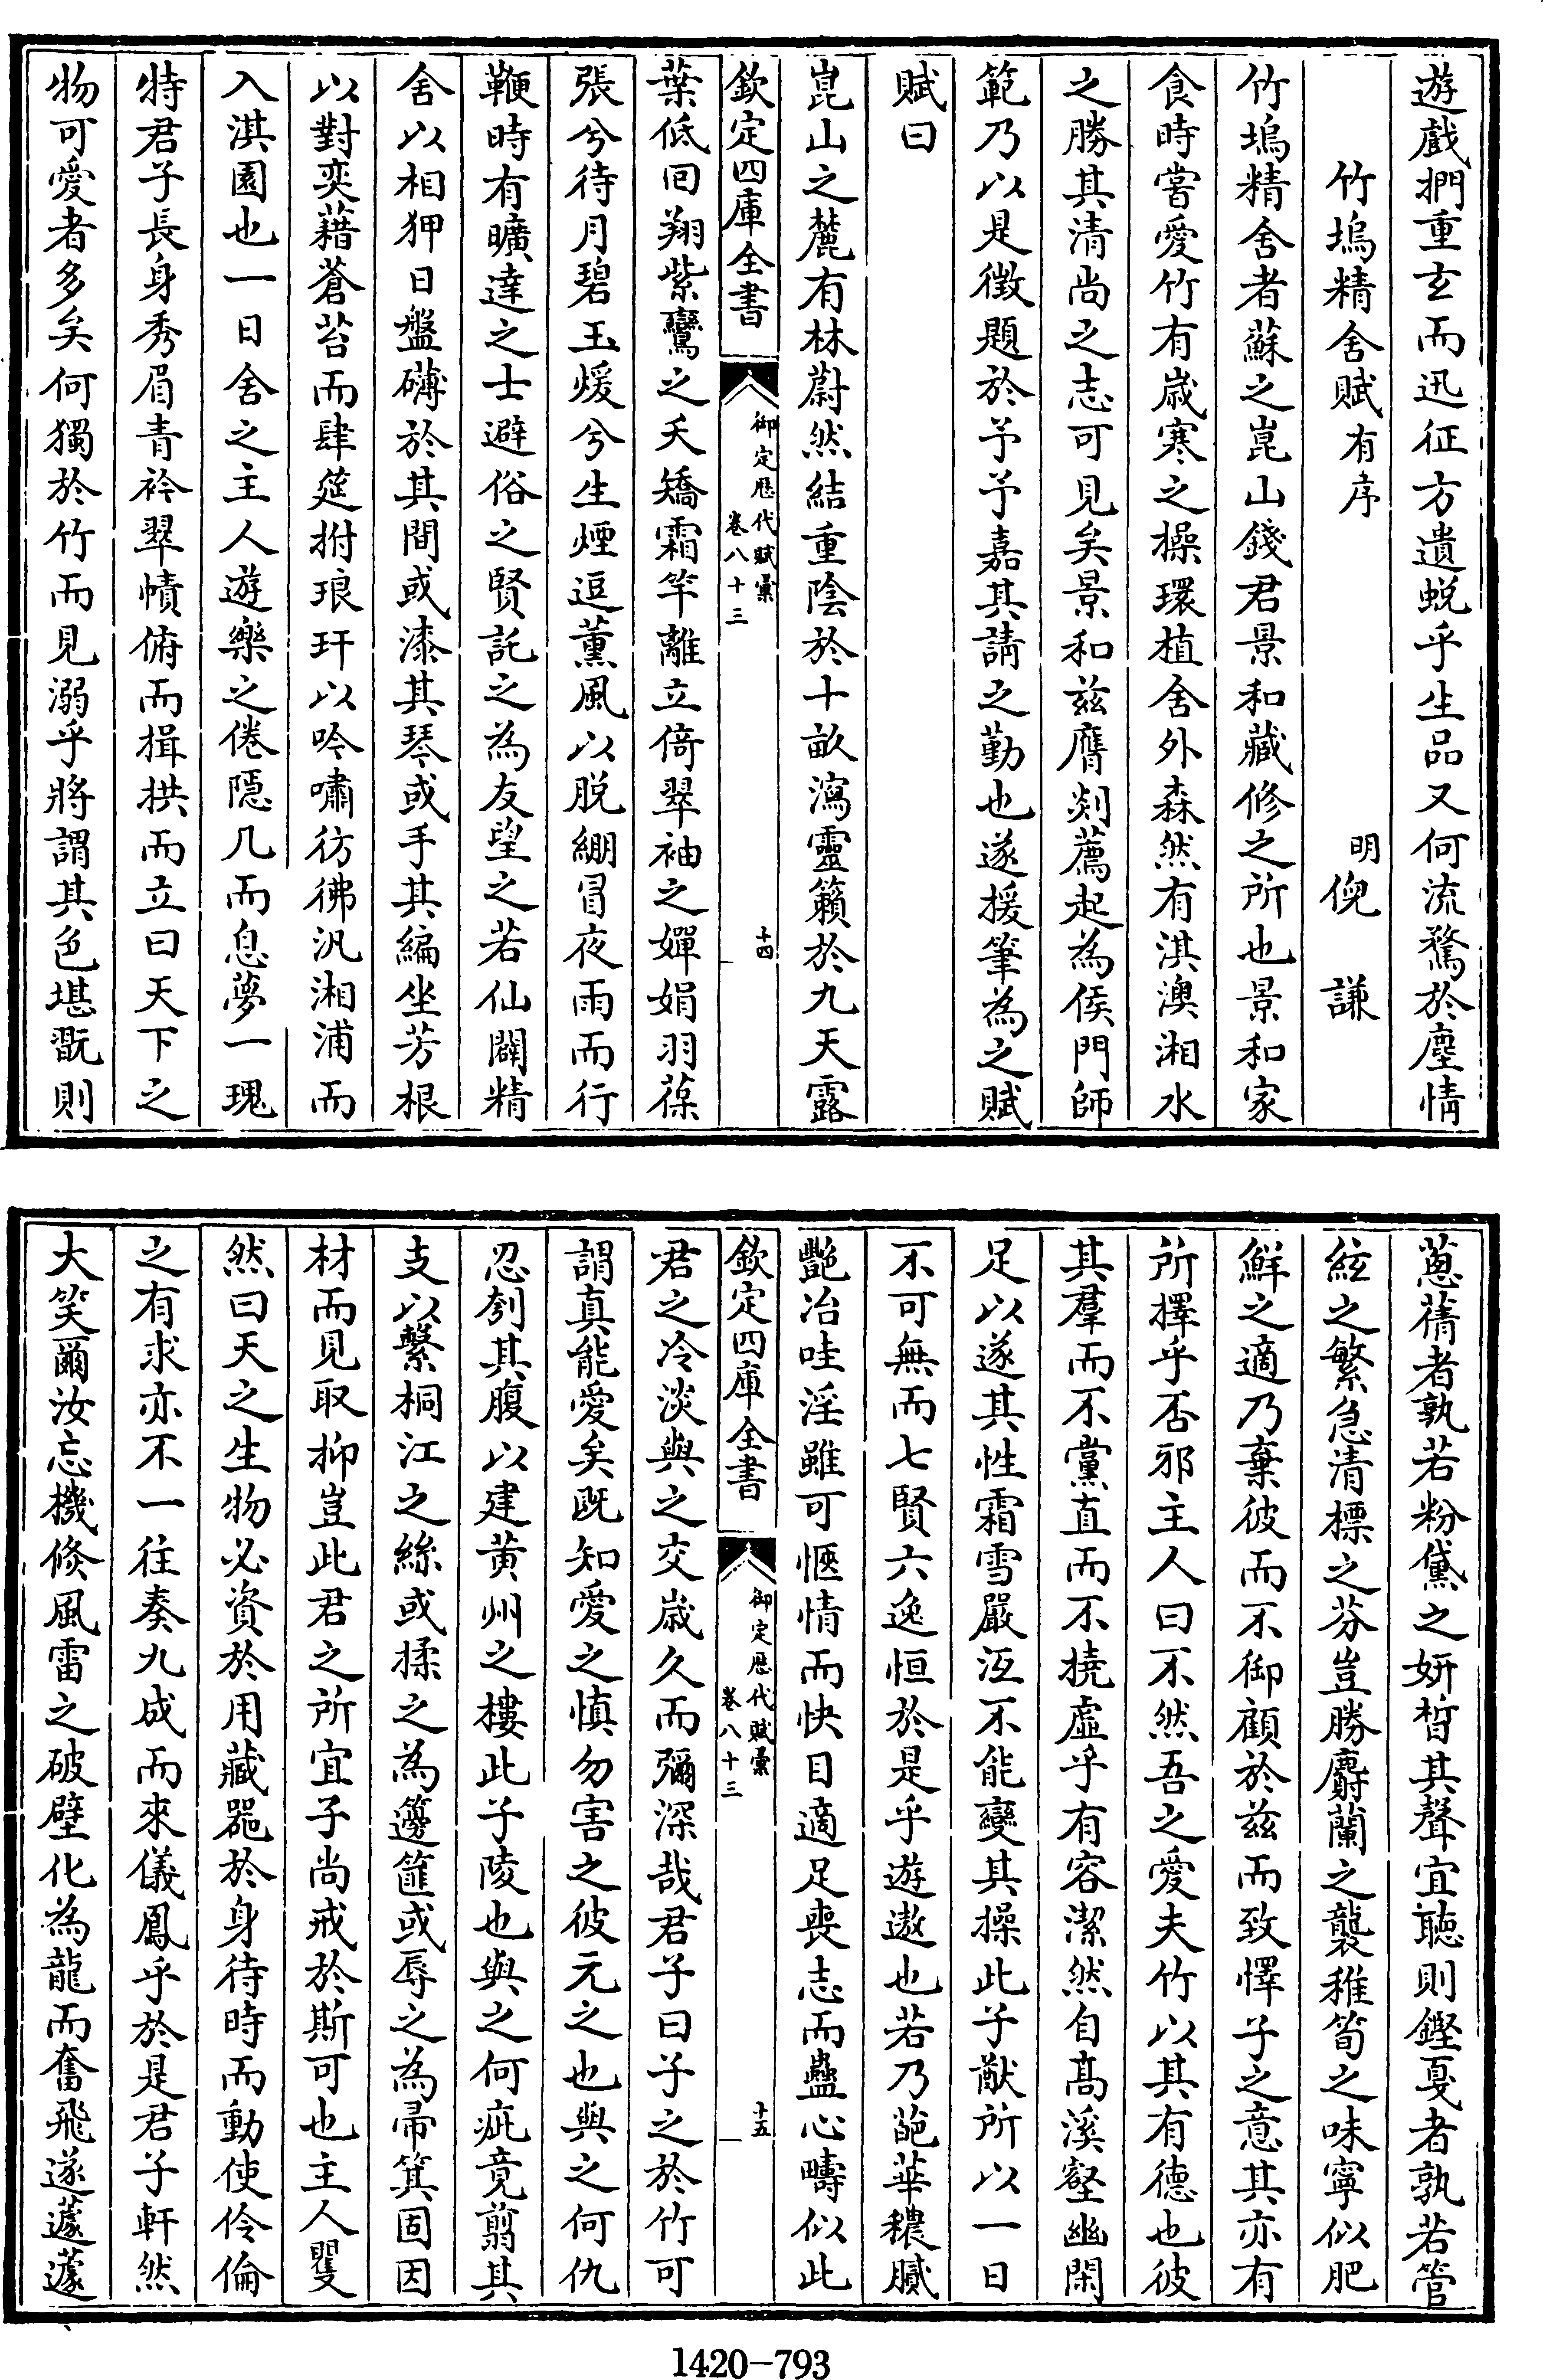 遊戲捫重玄而迅征方遺蜕乎生品又何流騖於塵情
竹塢精舍賦有序　明倪謙
竹塢精舍者蘇之崑山錢君景和藏修之所也景和家
食時嘗愛竹有歲寒之操環植舍外森然有淇澳湘水
之勝其清尚之志可見矣景和兹膺剡薦起為侯門師
範乃以是徵題於予予嘉其請之勤也遂援筆為之賦
賦曰
崑山之麓有林蔚然結重陰於十畝瀉靈籟於九天露
欽定四庫全書　御定歷代賦彙卷八十三　十四
葉低回翔紫鸞之夭矯霜竿離立倚翠袖之嬋娟羽葆
張兮待月碧玉煖兮生煙逗薰風以脱綳冒夜雨而行
鞭時有曠達之士避俗之賢託之為友望之若仙闢精
舍以相狎日盤礴於其間或漆其琴或手其編坐芳根
以對奕藉蒼苔而肆筵拊琅玕以吟嘯彷彿汎湘浦而
入淇園也一日舍之主人遊樂之倦隱几而息夢一瑰
特君子長身秀眉青衿翠幘俯而揖拱而立曰天下之
物可愛者多矣何獨於竹而見溺乎將謂其色堪翫則
蔥蒨者孰若粉黛之妍晳其聲宜聽則鏗戛者孰若管
絃之繁急清標之芬豈勝麝蘭之襲稚筍之味寧似肥
鮮之適乃棄彼而不御顧於兹而致懌子之意其亦有
所擇乎否邪主人曰不然吾之愛夫竹以其有德也彼
其羣而不黨直而不撓虛乎有容潔然自髙溪壑幽閑
足以遂其性霜雪嚴沍不能變其操此子猷所以一日
不可無而七賢六逸恒於是乎遊遨也若乃葩華穠膩
艷冶哇淫雖可愜情而快目適足喪志而蠱心疇似此
欽定四庫全書　御定歷代賦彙卷八十三　十五
君之冷淡與之交歲久而彌深哉君子曰子之於竹可
謂真能愛矣既知愛之慎勿害之彼元之也與之何仇
忍刳其腹以建黄州之樓此子陵也與之何疵竟翦其
支以繫桐江之絲或揉之為籩篚或辱之為帚箕固因
材而見取抑豈此君之所宜子尚戒於斯可也主人矍
然曰天之生物必資於用藏器於身待時而動使伶倫
之有求亦不一往奏九成而來儀鳳乎於是君子軒然
大笑爾汝忘機倐風雷之破壁化為龍而奮飛遂蘧蘧
1420-793